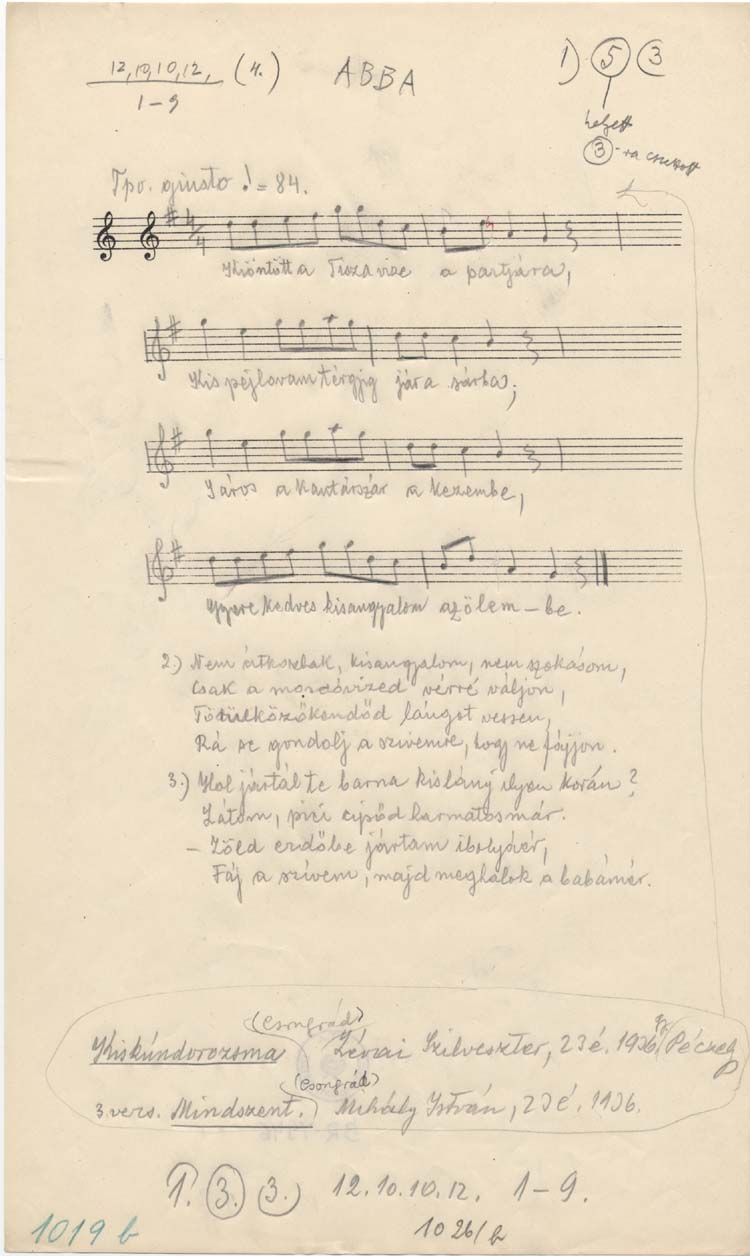 12, 10, 10, 12, (4.) ABBA 1) 5 3
1-9
helyett
3 -ra
Tpo. giusto ♩ = 84.
4/4
Kiöntött a Tisza vize a partjára,
Kis pejlovam térgyig jára sárba;
Sáros a kantárszár a kezembe,
Gyere kedves kisangyalom azölem-be.
2.) Nem átkozlak, kisangyalom, nem szokásom,
Csak a mosdóvized vérré váljon,
Törülközőkendőd lángot vessen,
Rá se gondolj a szivemre, hogy ne fájjon.
3.) Hol jártál te barna kislány ilyen korán?
Látom, pici cipőd harmatos már.
- Zöld erdőbe jártam ibolyáér,
Fáj a szívem, majd meghalok a babámér.
(Csongrád)
Kiskúndorozsma Szilveszter, 23 é. 1936 Péczely
(Csongrád)
3. vers. Mindszent. Mihály István, 23 é. 1936.
1. 3. 3. 12. 10. 10. 12. 1-9.
1019 b 1026/b